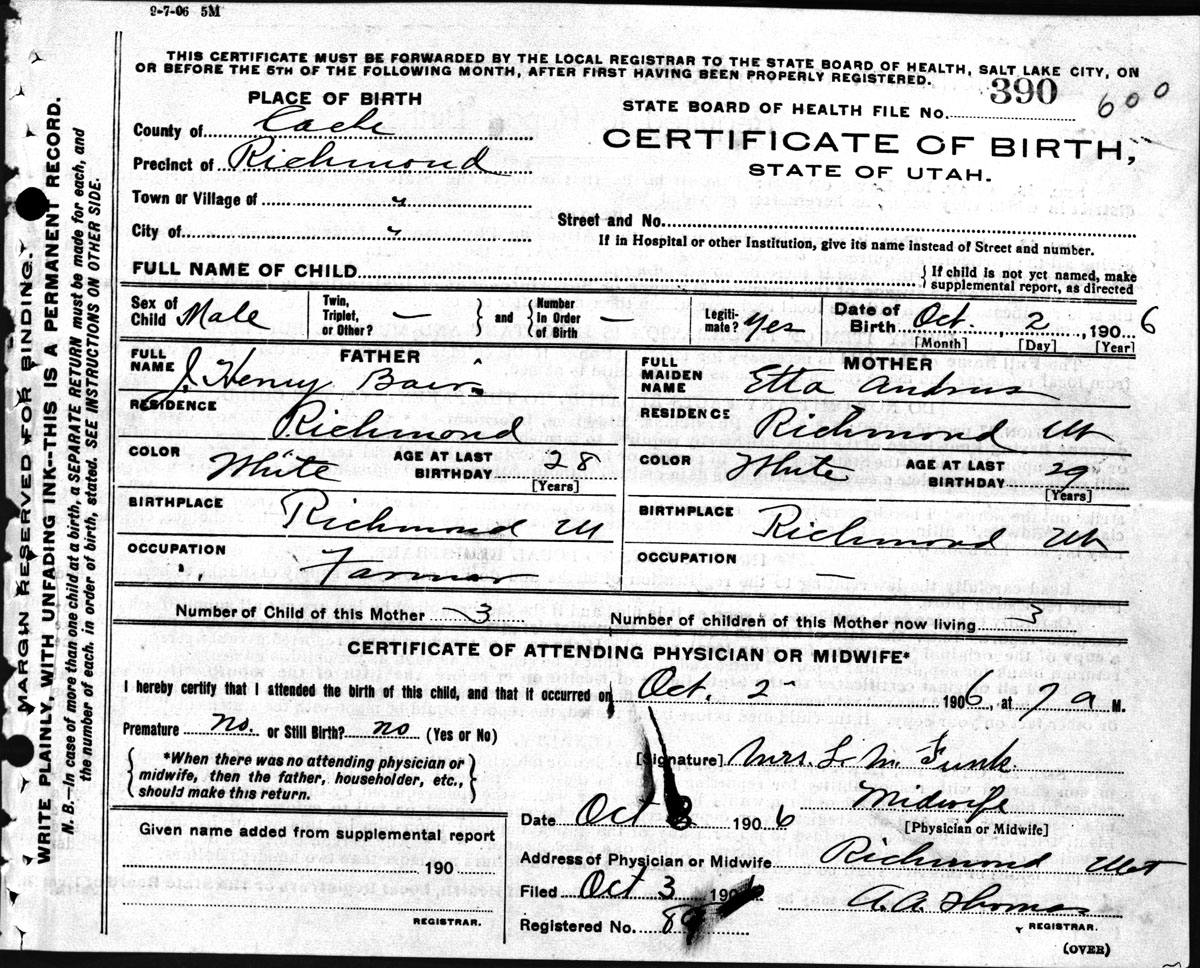 9-7-06 5M
THIS CERTIFICATE MUST BE FORWARDED BY THE LOCAL REGISTRAR TO THE STATE BOARD OF HEALTH, SALT LAKE CITY, ON
OR BEFORE THE 5TH OF THE FOLLOWING MONTH, AFTER FIRST HAVING BEEN PROPERLY REGISTERED.
PLACE OF BIRTH
STATE BOARD OF HEALTH FILE No. 390 600
County of Cache
CERTIFICATE OF BIRTH,
Precinct of Richmond
STATE OF UTAH.
Town or Village of "
Street and No.
City of "
If in Hospital or other Institution, give its name instead of Street and number.
FULL NAME OF CHILD
{ If child is not yet named, make
supplemental report, as directed
Sex of Child Male
Twin, Triplet, or Other? — } and { Number in Order of Birth —
Legiti-mate? Yes
Date of Birth Oct. 2, 1906
[Month] [Day] [Year]
FATHER
FULL NAME J. Henry
RESIDENCE Richmond
COLOR White AGE AT LAST BIRTHDAY 28
[Years]
BIRTHPLACE Richmond Ut
OCCUPATION Farmer
MOTHER
FULL MAIDEN NAME Etta Andrus
RESIDENCE Richmond Ut
COLOR White AGE AT LAST BIRTHDAY 29
[Years]
BIRTHPLACE Richmond Ut
OCCUPATION —
Number of Child of this Mother 3 Number of children of this Mother now living 3
CERTIFICATE OF ATTENDING PHYSICIAN OR MIDWIFE*
I hereby certify that I attended the birth of this child, and that it occurred on Oct. 2 1906, at 7 a M.
Premature no. or Still Birth? no (Yes or No)
{ *When there was no attending physician or
midwife, then the father, householder, etc.,
should make this return. }
[Signature] Mrs. L M. Funk.
Midwife
[Physician or Midwife]
Date Oct 1906
Given name added from supplemental report
190
REGISTRAR.
Address of Physician or Midwife Richmond Utah
Filed Oct 3 190
A. A. Thomas
REGISTRAR.
Registered No. 89
(OVER)
MARGIN RESERVED FOR BINDING.
WRITE PLAINLY, WITH UNFADING INK--THIS IS A PERMANENT RECORD.
N. B.—In case of more than one child at a birth, a SEPARATE RETURN must be made for each, and
the number of each, in order of birth, stated. SEE INSTRUCTIONS ON OTHER SIDE.